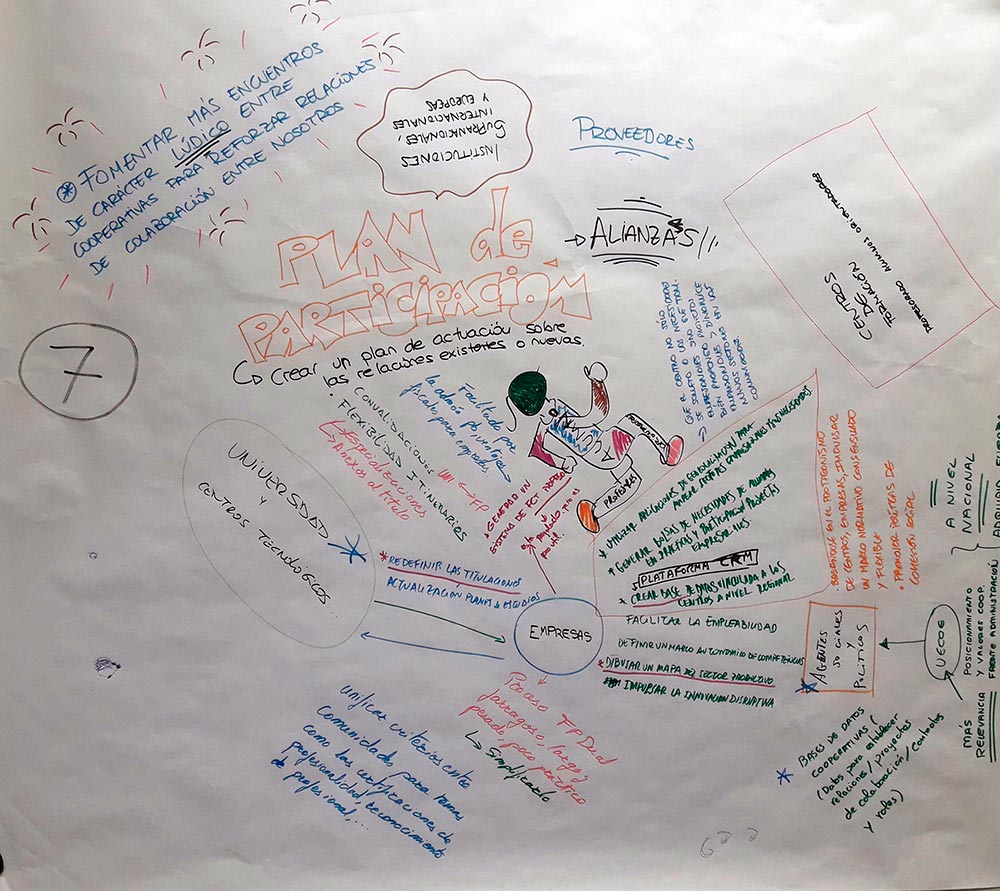 * FOMENTAR MÁS ENCUENTROS
DE CARÁCTER LÚDICO ENTRE
COOPERATIVAS PARA REFORZAR RELACIONES
DE COLABORACIÓN ENTRE NOSOTROS
INSTITUCIONES
SUPRANACIONALES,
INTERNACIONALES
Y EUROPEAS
PROVEEDORES
→ ALIANZAS
CENTROS
DE
FORMACIÓN
PROFESORADO ALUMNOS ORIENTADORES
PLAN de
PARTICIPACIÓN
Crear un plan de actuación sobre
las relaciones existentes o nuevas.
7
QUE EL CENTRO NO SÓLO
SE
BIEN
NUEVOS SECTORES
UNIVERSIDAD
Y
CENTROS TECNOLÓGICOS
CONVALIDACIONES UNI ↔ FP
FLEXIBILIDAD ITINERARIOS
Especializaciones
Anexos al título
Facilitado por
la admón pb, ventajas
fiscales para empresas
* GENERAR UN
SISTEMA DE FCT
PROFESORES
* UTILIZAR ACCIONES DE GEOLOCALIZACIÓN PARA
* GENERAR BOLSAS DE NECESIDADES DE ALUMNOS
EN PRÁCTICAS Y PARTICIPACIÓN PROYECTOS
EMPRESARIALES
PLATAFORMA CRM
* CREAR BASE DE DATOS VINCULADA A LOS
CENTROS A NIVEL REGIONAL
· BASÁNDOSE EN EL PROTAGONISMO
DE CENTROS, EMPRESAS, IMPULSAR
UN MARCO NORMATIVO CONSENSUADO
Y FLEXIBLE
· PROMOVER POLÍTICAS DE
COHESIÓN SOCIAL
* REDEFINIR LAS TITULACIONES
ACTUALIZACIÓN PLANES DE ESTUDIOS
EMPRESAS
FACILITAR LA EMPLEABILIDAD
DEFINIR UN MARCO AUTONÓMICO DE COMPETENCIAS
* DIBUJAR UN MAPA DEL SECTOR PRODUCTIVO
IMPULSAR LA INNOVACIÓN DISRUPTIVA
AGENTES
SOCIALES
Y
POLÍTICOS
UECOE
MÁS
RELEVANCIA
POSICIONAMIENTO
Y VALORES COOP.
FRENTE ADMINISTRACIÓN
A NIVEL
NACIONAL
Proceso FP Dual
farragoso, largo y
pesado, poco práctico
↳ Simplificarlo
unificar criterios entre
Comunidades para temas
como las certificaciones de
profesionalidad, reconocimiento
de profesional, ...
* BASES DE DATOS
COOPERATIVAS
(Datos para establecer
relaciones / proyectos
de colaboración / Contactos
y roles)